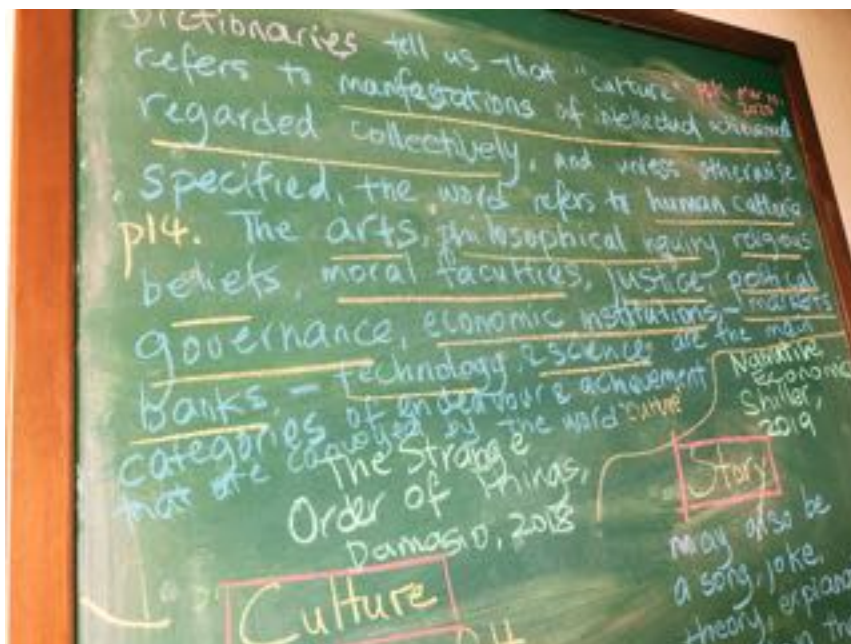 Dictionaries tell us that "culture"
refers to manifestations of intellectual achievement
regarded collectively, and unless otherwise
specified, the word refers to human culture
p14. The arts, philosophical inquiry religious
beliefs, moral faculties, justice, political
governance, economic institutions, - markets
banks, - technology & science are the main
categories of endeavour & achievement
that are conveyed by the word "culture"
The Strange
Order of Things,
Damasio, 2018
Narrative
Economics
Shiller,
2019
Story
may also be
a song, joke,
theory, explana
Culture